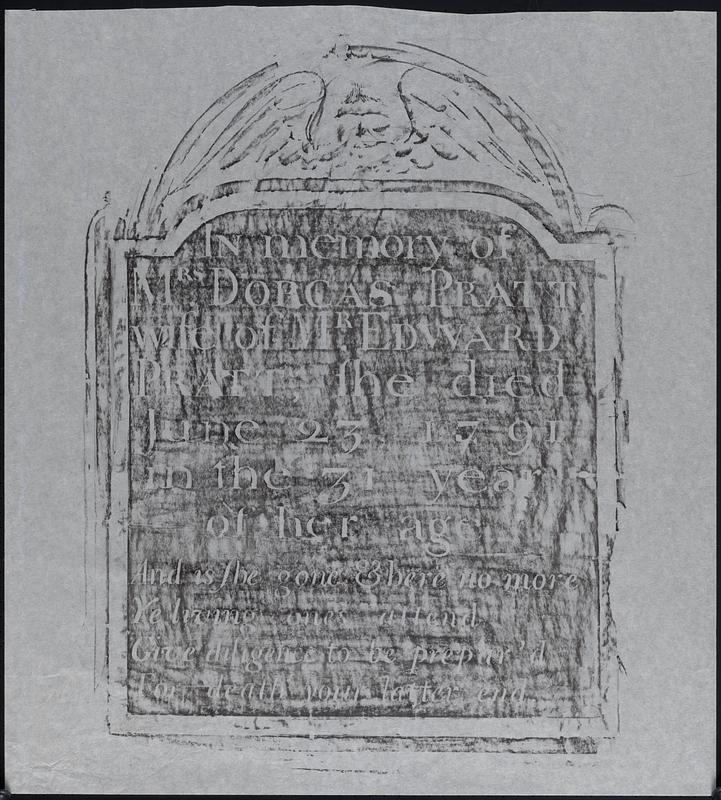 In memory of
Mrs DORCAS PRATT,
wife of Mr EDWARD
PRATT, ſhe died
June 23, 1791
in the 31 year
of her age
And is ſhe gone & here no more
Ye living ones attend
Give diligence to be prepar'd
For death your latter end